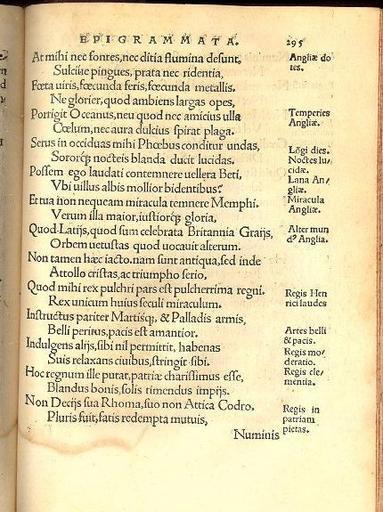 EPIGRAMMATA. 295
At mihi nec fontes, nec ditia flumina desunt,
Sulcique pingues, prata nec ridentia,
Fœta uiris, fœcunda feris, fœcunda metallis.
Ne glorier, quod ambiens largas opes,
Porrigit Oceanus, neu quod nec amicius ulla
Cœlum, nec aura dulcius spirat plaga.
Serus in occiduas mihi Phœbus conditur undas,
Sororq́; noctes blanda ducit lucidas.
Possem ego laudati contemnere uellera Beti,
Vbi uillus albis mollior bidentibus?
Et tua non nequeam miracula temnere Memphi.
Verum illa maior, iustiorq́; gloria,
Quod Latijs, quod sum celebrata Britannia Graijs,
Orbem uetustas quod uocauit alterum.
Non tamen hæc iacto. nam sunt antiqua, sed inde
Attollo cristas, ac triumpho serio,
Quod mihi rex pulchri pars est pulcherrima regni.
Rex unicum huius seculi miraculum.
Instructus pariter Martisq́;, & Palladis armis,
Belli peritus, pacis est amantior.
Indulgens alijs, sibi nil permittit, habenas
Suis relaxans ciuibus, stringit sibi.
Hoc regnum ille putat, patriæ charissimus esse,
Blandus bonis, solis timendus impijs.
Non Decijs sua Rhoma, suo non Attica Codro,
Pluris fuit, satis redempta mutuis,
Numinis
Angliæ do
tes.
Temperies
Angliæ.
Lõgi dies.
Noctes lu/
cidæ.
Lana An/
gliæ.
Miracula
Angliæ.
Alter mun
dꝰ Anglia.
Regis Hen
rici laudes
Artes belli
& pacis.
Regis mo/
deratio.
Regis cle/
mentia.
Regis in
patriam
pietas.